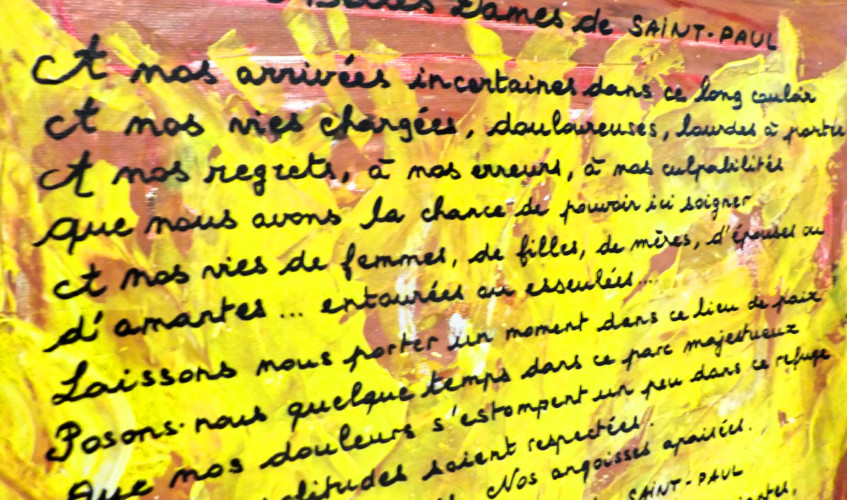 Belles Dames de SAINT-PAUL
A nos arrivées incertaines dans ce long couloir
A nos vies chargées, douloureuses, lourdes à porter
A nos regrets, à nos erreurs, à nos culpabilités
Que nous avons la chance de pouvoir ici soigner
A nos vies de femmes, de filles, de mères, d'épouses ou
d'amantes... entourées ou esseulées...
Laissons nous porter un moment dans ce lieu de paix
Posons-nous quelque temps dans ce parc majestueux
Que nos douleurs s'estompent un peu dans ce refuge
soient respectées.
Nos angoisses apaisées.
SAINT-PAUL